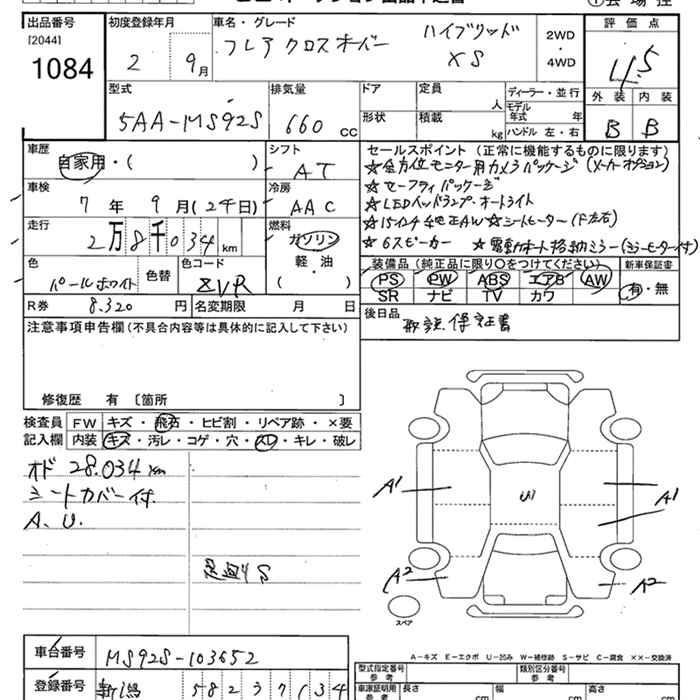 出品番号 初度登録年月 車名・グレード 評価点
[2044]
1084
2 9月 フレアクロスオーバー ハイブリッド XS 2WD・4WD 4.5
型式 排気量 ドア 定員 人 ディーラー・並行 外装 内装
5AA-MS92S 660cc 形状 積載 kg モデル年式 年 ハンドル 左・右 B B
車歴 自家用・( ) シフト AT
車検 7年 9月(24日) 冷房 AAC
走行 2万8千034km 燃料 ガソリン 軽・油 ( )
色 パールホワイト 色替 色コード ZVR
R券 8.320円 名変期限 月 日
セールスポイント(正常に機能するものに限ります)
☆全方位モニター用カメラパッケージ(メーカーオプション)
☆セーフティパッケージ
☆LEDヘッドランプ・オートライト
☆15インチ純正AW☆シートヒーター(F左右)
☆6スピーカー ☆電動オート格納ミラー(ミラーヒーター付)
装備品(純正品に限り○をつけてください) 新車保証書
PS PW ABS エアB AW 有・無
SR ナビ TV カワ
後日品 取説、保証書
注意事項申告欄(不具合内容等は具体的に記入して下さい)
修復歴 有 〔箇所 〕
検査員 FW キズ・飛石・ヒビ割・リペア跡・×要
記入欄 内装 キズ・汚レ・コゲ・穴・スレ・キレ・破レ
オド 28.034km
シートカバー付
A、U.
足廻りS
A1 U A1
A2 A2
スペア
A-キズ E-エクボ U-凹み W-補修跡 S-サビ C-腐食 ××-交換済
車台番号 MS92S-103652
登録番号 新潟 582 う 7134
型式指定番号 参考 類別区分番号 参考
車庫証明用 参考 長さ cm 幅 cm 高さ cm